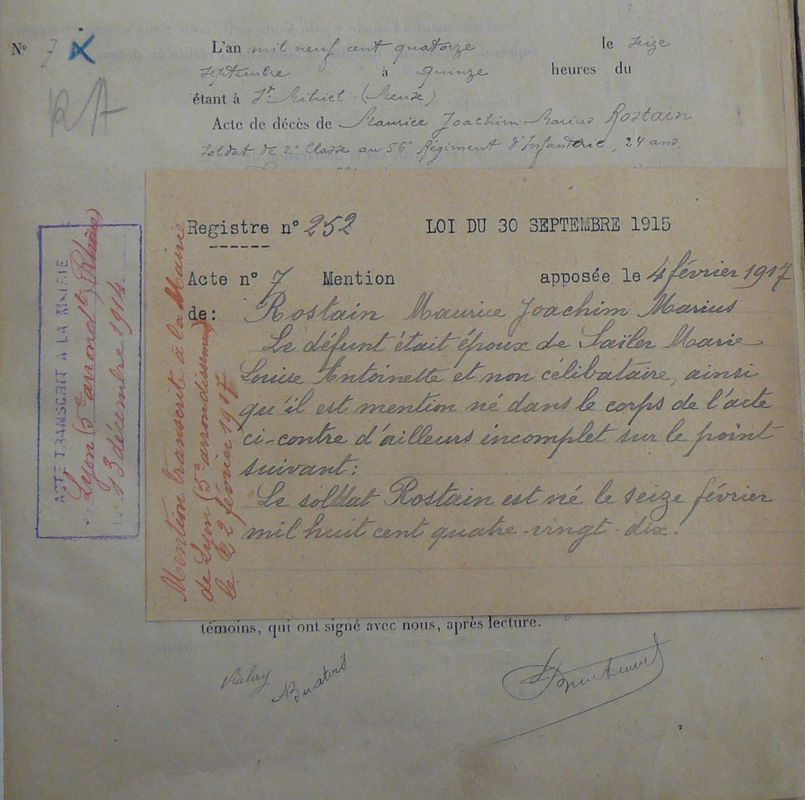 N° 7
L'an mil neuf cent quatorze le seize
septembre à quinze heures du
étant à St Mihiel (Meuse)
Acte de décès de Maurice Joachim Marius Rostain
Soldat de 2e Classe au 56e Régiment d'Infanterie, 24 ans
ACTE TRANSCRIT A LA MAIRIE
Lyon (5e arrondt) Rhône
13 décembre 1914
Mention transcrit à la Mairie
de Lyon (5e arrondissement)
le 2 février 1917
Registre n° 252 LOI DU 30 SEPTEMBRE 1915
Acte n° 7 Mention apposée le 4 février 1917
de: Rostain Maurice Joachim Marius
Le défunt était époux de Saïler Marie
Louise Antoinette et non célibataire, ainsi
qu'il est mention né dans le corps de l'acte
ci-contre d'ailleurs incomplet sur le point
suivant:
Le soldat Rostain est né le seize février
mil huit cent quatre-vingt-dix.
témoins, qui ont signé avec nous, après lecture.